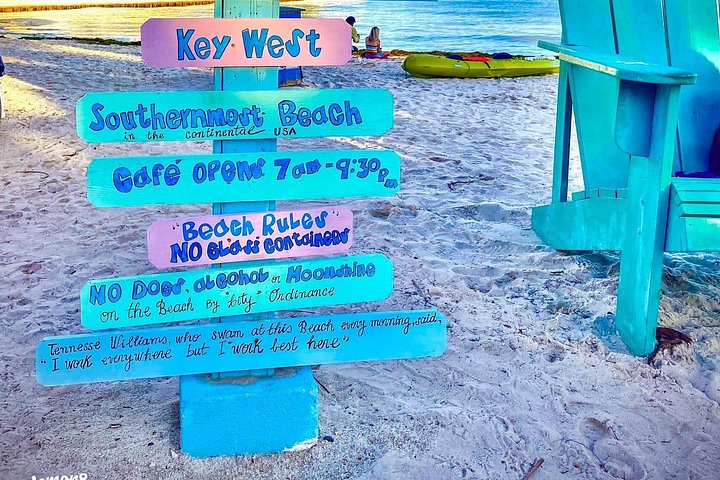 Key West
Southernmost Beach
in the continental USA
Café opens 7am - 9:30pm
"Beach Rules"
No Glass Containers
No Dogs, alcohol or Moonshine
on the Beach By "City" Ordinance
Tennesse Williams, who swam at this Beach every morning, said,
"I work everywhere but I work best here"
lemon8